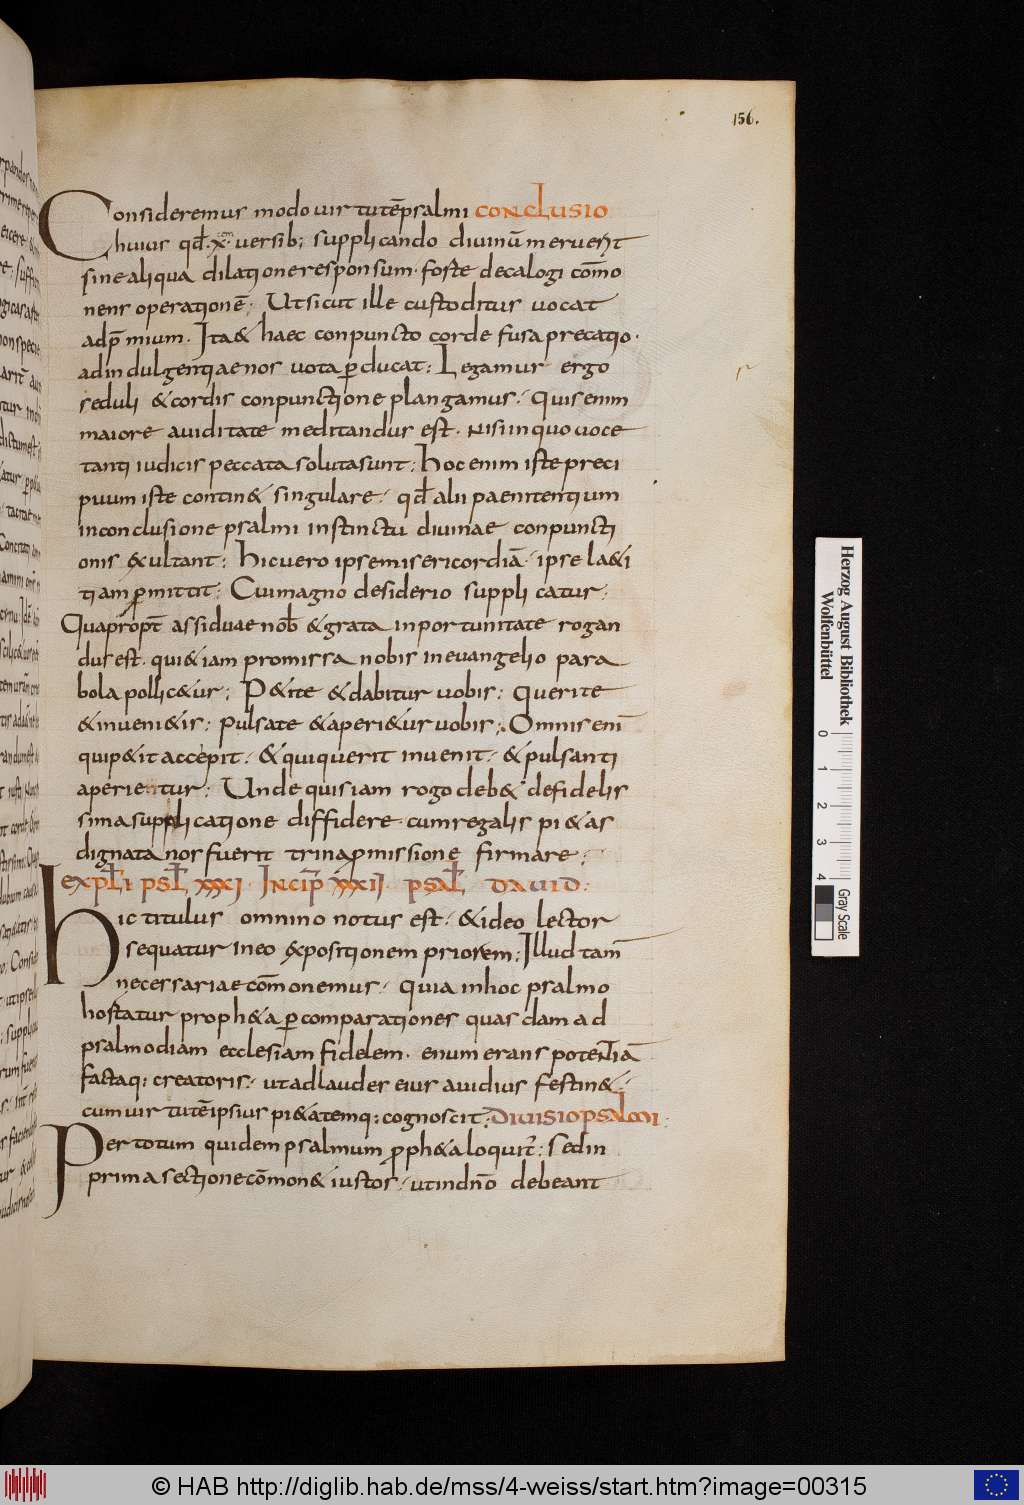 156.
Consideremus modo uirtutē psalmi CONCLUSIO
huius qđ · x · uersib; supplicando diuinū meruerit
sine aliqua dilatione responsum · foste decalogi cōmo
nens operationē; Ut sicut ille custoditus uocat
ad p̄mium. Ita & haec conpuncto corde fusa precatio ·
ad indulgentiae nos uota ꝑducat: Legamus ergo
seduli & cordis conpunctione plangamus; Quis enim
maiore auiditate meditandus est · Nisi in quo uoce
tanti iudicis peccata soluta sunt; Hoc enim iste preci
puum iste contin& singulare; qđ alii paenitentium
in conclusione psalmi instinctu diuinae conpuncti
onis exultant; Hic uero ipse misericordiā · ipse la&i
tiam ꝓmittit: Cui magno desiderio supplicatur;
Quapropt̄ assiduae nob̄ & grata inportunitate rogan
dus est · qui & iam promissa nobis in euangelio para
bola pollic&ur; P&ite & dabitur uobis; Querite
& inueni&is: Pulsate & aperi&ur uobis; Omnis enī
qui p&it accepit · & qui querit inuenit · & pulsanti
aperientur: Unde quis iam rogo deb& de fidelis
sima supplicatione diffidere · cum regalis pi&as
dignata nos fuerit trina ꝓmissione firmare;
EXPL̄I PSL̄ XXXI · INCIP̄ XXXII · PSAL̄ DAVID:
Hic titulus omnino notus est · & ideo lector
sequatur in eo expositionem priorem; Illud tam̄
necessariae cōmonemus · Quia in hoc psalmo
hostatur proph&a ꝑ comparationes quasdam ad
psalmodiam ecclesiam fidelem · enumerans potentiā
factaq; creatoris; ut ad laudes eius auidius festin&;
cum uirtutē ipsius pi&atemq; cognoscit; DIUISIO PSALMI
Per totum quidem psalmum ꝓph&a loquit̄: sed in
prima sectione cōmon& iustos; ut in dn̄o debeant
Herzog August Bibliothek
Wolfenbüttel
0 1 2 3 4
Gray Scale
© HAB http://diglib.hab.de/mss/4-weiss/start.htm?image=00315